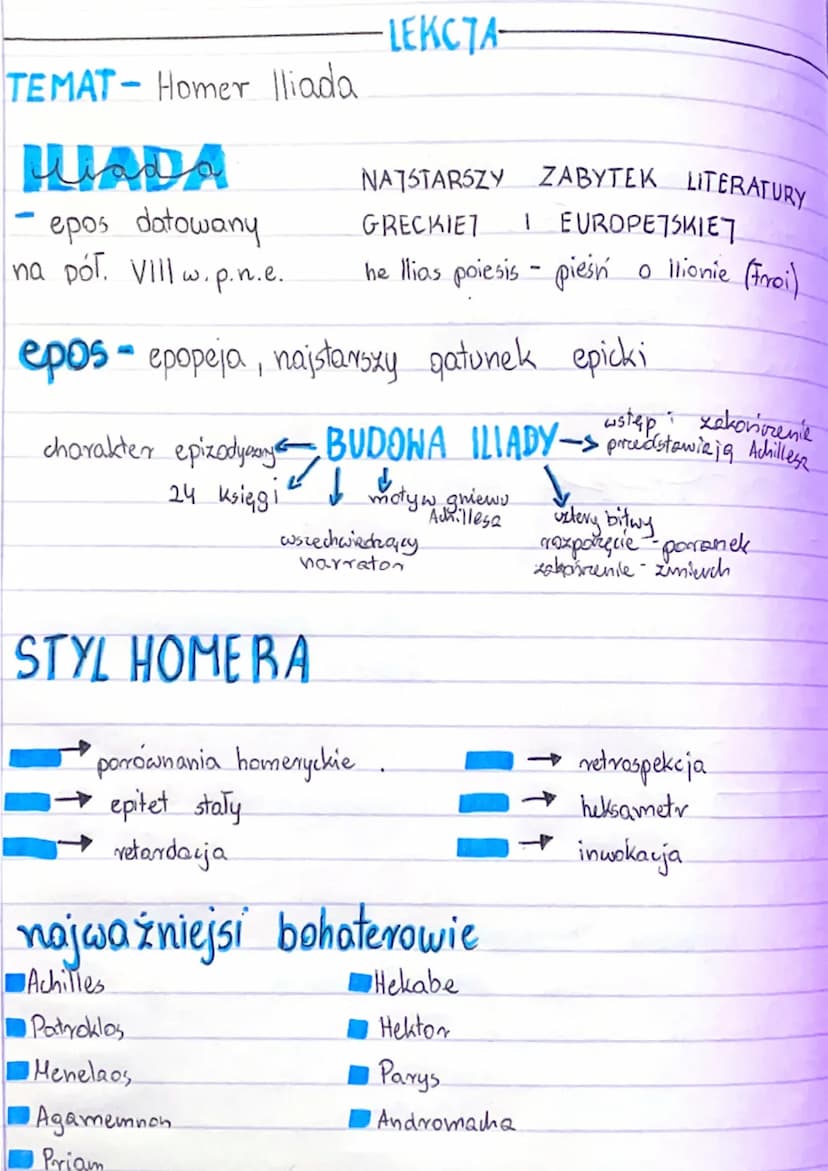 LEKCJA
TEMAT - Homer Iliada
ILIADA
Iliada
- epos datowany
na pół. VIII w. p.n.e.
NAJSTARSZY ZABYTEK LITERATURY
GRECKIEJ I EUROPEJSKIEJ
he Ilias poiesis - pieśń o Ilionie (Troi)
epos - epopeja, najstarszy gatunek epicki
BUDOWA ILIADY
charakter epizodyczny
24 księgi
wszechwiedzący
narrator
motyw gniewu
Achillesa
wstęp i zakończenie
przedstawiają Achillesa
cztery bitwy
rozpoczęcie - poranek
zakończenie - zmierzch
STYL HOMERA
porównania homeryckie.
epitet stały
retardacja
retrospekcja
heksametr
inwokacja
najważniejsi bohaterowie
Achilles
Patroklos
Menelaos
Agamemnon
Priam
Hekabe
Hektor
Parys
Andromacha